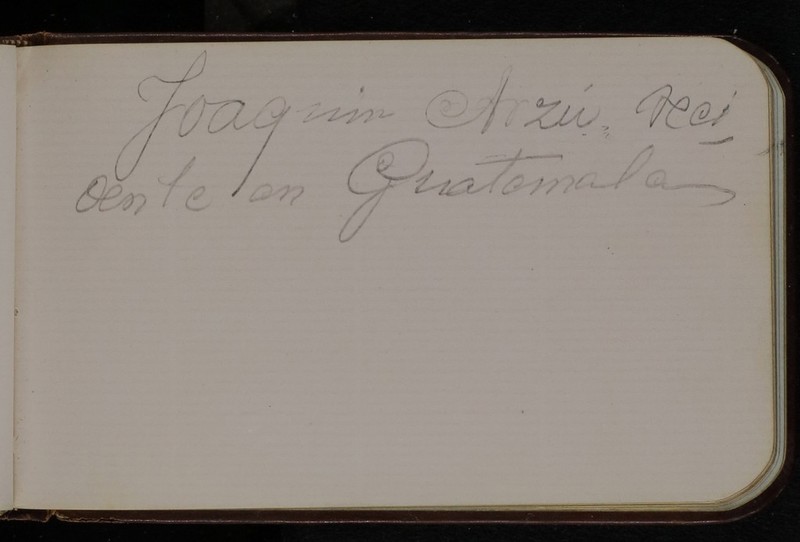 Joaquin Arzú. Reci-
dente en Guatemala